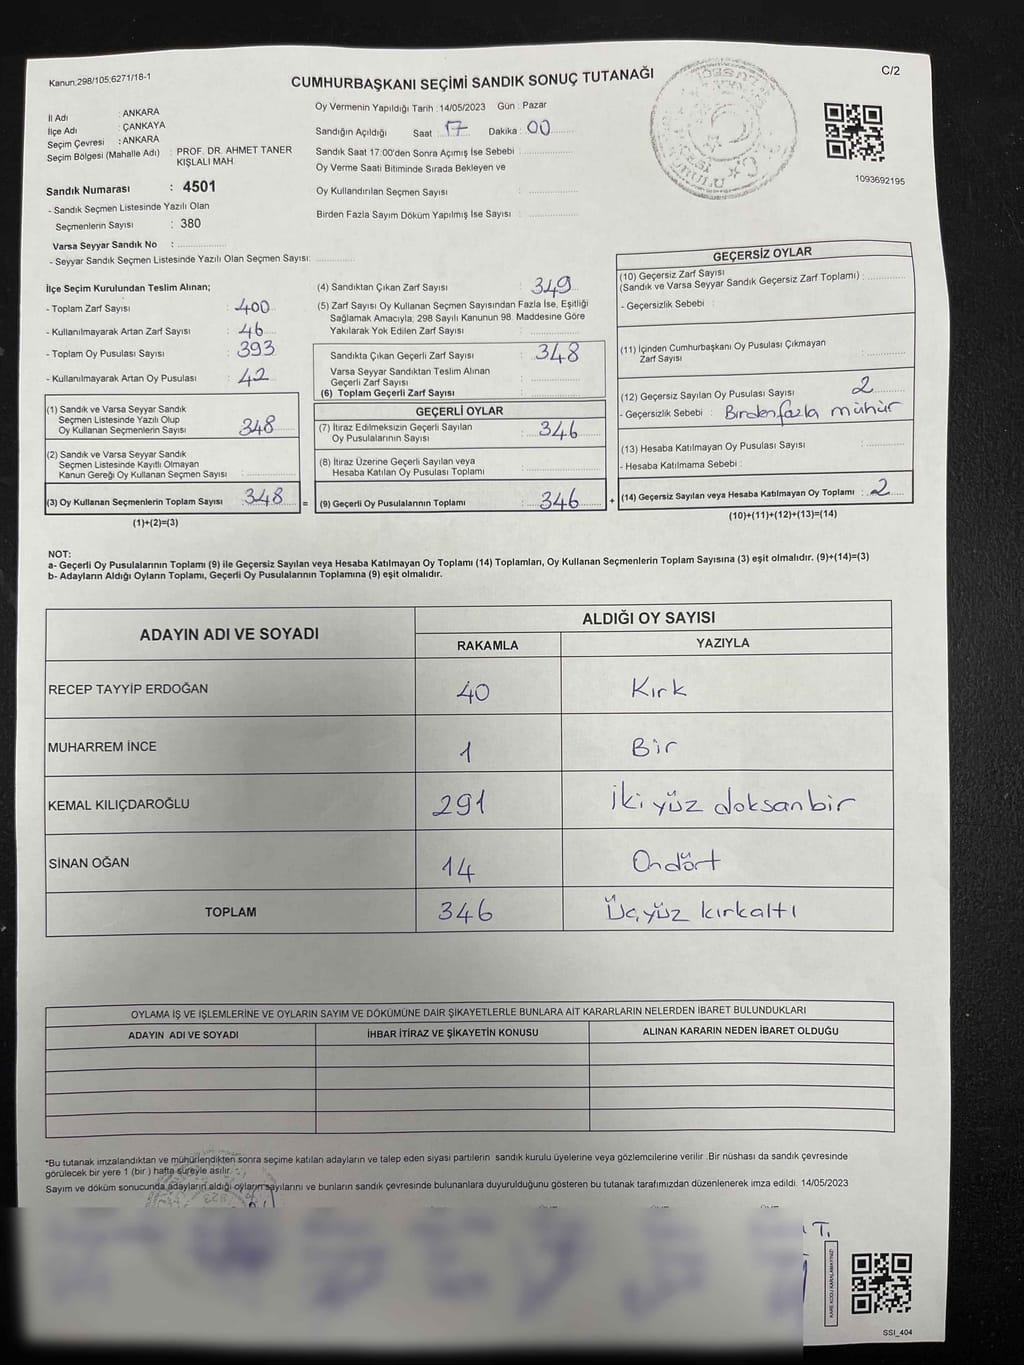 Kanun:298/105;6271/18-1
CUMHURBAŞKANI SEÇİMİ SANDIK SONUÇ TUTANAĞI
C/2
İl Adı : ANKARA
İlçe Adı : ÇANKAYA
Seçim Çevresi : ANKARA
Seçim Bölgesi (Mahalle Adı) : PROF. DR. AHMET TANER
KIŞLALI MAH.
Sandık Numarası : 4501
- Sandık Seçmen Listesinde Yazılı Olan
Seçmenlerin Sayısı : 380
Varsa Seyyar Sandık No :
- Seyyar Sandık Seçmen Listesinde Yazılı Olan Seçmen Sayısı:
Oy Vermenin Yapıldığı Tarih : 14/05/2023 Gün : Pazar
Sandığın Açıldığı Saat : 17 Dakika : 00
Sandık Saat 17:00'den Sonra Açımış İse Sebebi :
Oy Verme Saati Bitiminde Sırada Bekleyen ve
Oy Kullandırılan Seçmen Sayısı :
Birden Fazla Sayım Döküm Yapılmış İse Sayısı :
1093692195
İlçe Seçim Kurulundan Teslim Alınan;
- Toplam Zarf Sayısı : 400
- Kullanılmayarak Artan Zarf Sayısı : 46
- Toplam Oy Pusulası Sayısı : 393
- Kullanılmayarak Artan Oy Pusulası : 42
(1) Sandık ve Varsa Seyyar Sandık
Seçmen Listesinde Yazılı Olup
Oy Kullanan Seçmenlerin Sayısı : 348
(2) Sandık ve Varsa Seyyar Sandık
Seçmen Listesinde Kayıtlı Olmayan
Kanun Gereği Oy Kullanan Seçmen Sayısı :
(3) Oy Kullanan Seçmenlerin Toplam Sayısı : 348 =
(1)+(2)=(3)
(4) Sandıktan Çıkan Zarf Sayısı : 349
(5) Zarf Sayısı Oy Kullanan Seçmen Sayısından Fazla İse, Eşitliği
Sağlamak Amacıyla; 298 Sayılı Kanunun 98. Maddesine Göre
Yakılarak Yok Edilen Zarf Sayısı :
Sandıkta Çıkan Geçerli Zarf Sayısı : 348
Varsa Seyyar Sandıktan Teslim Alınan
Geçerli Zarf Sayısı :
(6) Toplam Geçerli Zarf Sayısı :
GEÇERLİ OYLAR
(7) İtiraz Edilmeksizin Geçerli Sayılan
Oy Pusulalarının Sayısı : 346
(8) İtiraz Üzerine Geçerli Sayılan veya
Hesaba Katılan Oy Pusulası Toplamı :
(9) Geçerli Oy Pusulalarının Toplamı : 346 +
GEÇERSİZ OYLAR
(10) Geçersiz Zarf Sayısı
(Sandık ve Varsa Seyyar Sandık Geçersiz Zarf Toplamı) :
- Geçersizlik Sebebi :
(11) İçinden Cumhurbaşkanı Oy Pusulası Çıkmayan
Zarf Sayısı :
(12) Geçersiz Sayılan Oy Pusulası Sayısı : 2
- Geçersizlik Sebebi : Birden fazla mühür
(13) Hesaba Katılmayan Oy Pusulası Sayısı :
- Hesaba Katılmama Sebebi :
(14) Geçersiz Sayılan veya Hesaba Katılmayan Oy Toplamı : 2
(10)+(11)+(12)+(13)=(14)
NOT:
a- Geçerli Oy Pusulalarının Toplamı (9) ile Geçersiz Sayılan veya Hesaba Katılmayan Oy Toplamı (14) Toplamları, Oy Kullanan Seçmenlerin Toplam Sayısına (3) eşit olmalıdır. (9)+(14)=(3)
b- Adayların Aldığı Oyların Toplamı, Geçerli Oy Pusulalarının Toplamına (9) eşit olmalıdır.
ADAYIN ADI VE SOYADI
ALDIĞI OY SAYISI
RAKAMLA YAZIYLA
RECEP TAYYİP ERDOĞAN 40 Kırk
MUHARREM İNCE 1 Bir
KEMAL KILIÇDAROĞLU 291 İki yüz doksanbir
SİNAN OĞAN 14 Ondört
TOPLAM 346 Üçyüz kırkaltı
OYLAMA İŞ VE İŞLEMLERİNE VE OYLARIN SAYIM VE DÖKÜMÜNE DAİR ŞİKAYETLERLE BUNLARA AİT KARARLARIN NELERDEN İBARET BULUNDUKLARI
ADAYIN ADI VE SOYADI İHBAR İTİRAZ VE ŞİKAYETİN KONUSU ALINAN KARARIN NEDEN İBARET OLDUĞU
*Bu tutanak imzalandıktan ve mühürlendikten sonra seçime katılan adayların ve talep eden siyasi partilerin sandık kurulu üyelerine veya gözlemcilerine verilir .Bir nüshası da sandık çevresinde
görülecek bir yere 1 (bir ) hafta süreyle asılır.
Sayım ve döküm sonucunda adayların aldığı oyların sayılarını ve bunların sandık çevresinde bulunanlara duyurulduğunu gösteren bu tutanak tarafımızdan düzenlenerek imza edildi. 14/05/2023
T.
KARE KODU KARALAMAYINIZ!
SSI_404